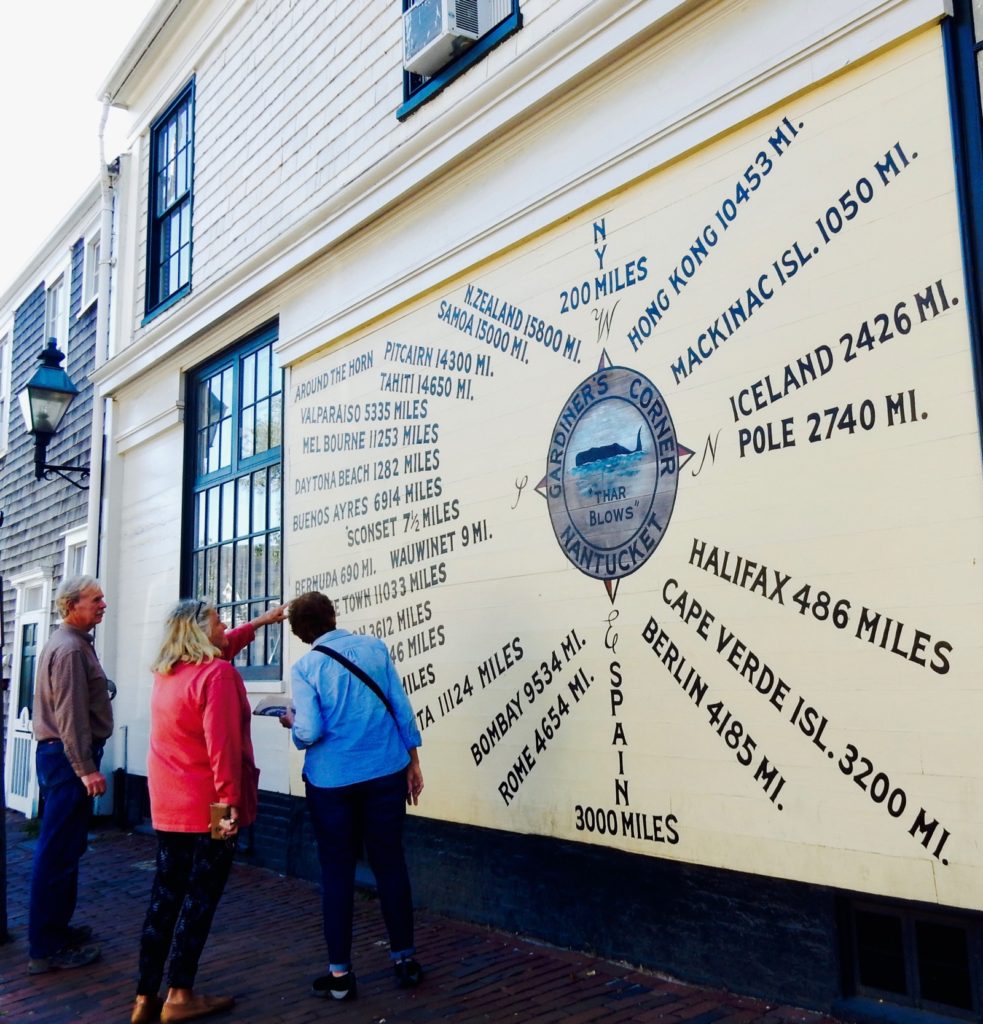 NY
200 MILES
W
HONG KONG 10453 MI.
MACKINAC ISL. 1050 MI.
ICELAND 2426 MI.
POLE 2740 MI.
N
N. ZEALAND 15800 MI.
SAMOA 15000 MI.
AROUND THE HORN PITCAIRN 14300 MI.
TAHITI 14650 MI.
VALPARAISO 5335 MILES
MELBOURNE 11253 MILES
DAYTONA BEACH 1282 MILES
BUENOS AYRES 6914 MILES
'SCONSET 7½ MILES
WAUWINET 9 MI.
BERMUDA 690 MI.
TOWN 11033 MILES
3612 MILES
46 MILES
MILES
TA 11124 MILES
BOMBAY 9534 MI.
ROME 4654 MI.
S
GARDINER'S CORNER
"THAR
BLOWS"
NANTUCKET
E
SPAIN
3000 MILES
HALIFAX 486 MILES
CAPE VERDE ISL. 3200 MI.
BERLIN 4185 MI.